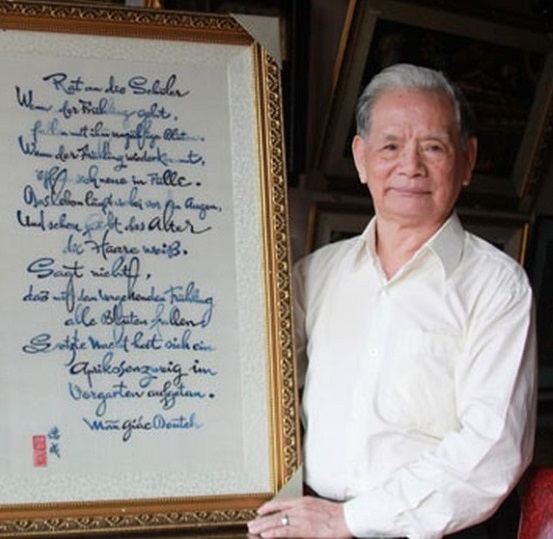 Rat an die Schüler
Wenn der Frühling geht,
fallen mit ihm Blüten.
Wenn der Frühling wiederkommt,
öffnen neue in Fülle.
Das Leben läuft vor den Augen,
Und schon färbt das Alter
die Haare weiß.
Sagt nicht,
daß mit dem vergehenden Frühling
alle Blüten fallen
Letzte Nacht hat sich ein
Aprikosenzweig im
Vorgarten aufgetan.
Mãn Giác Deutsch